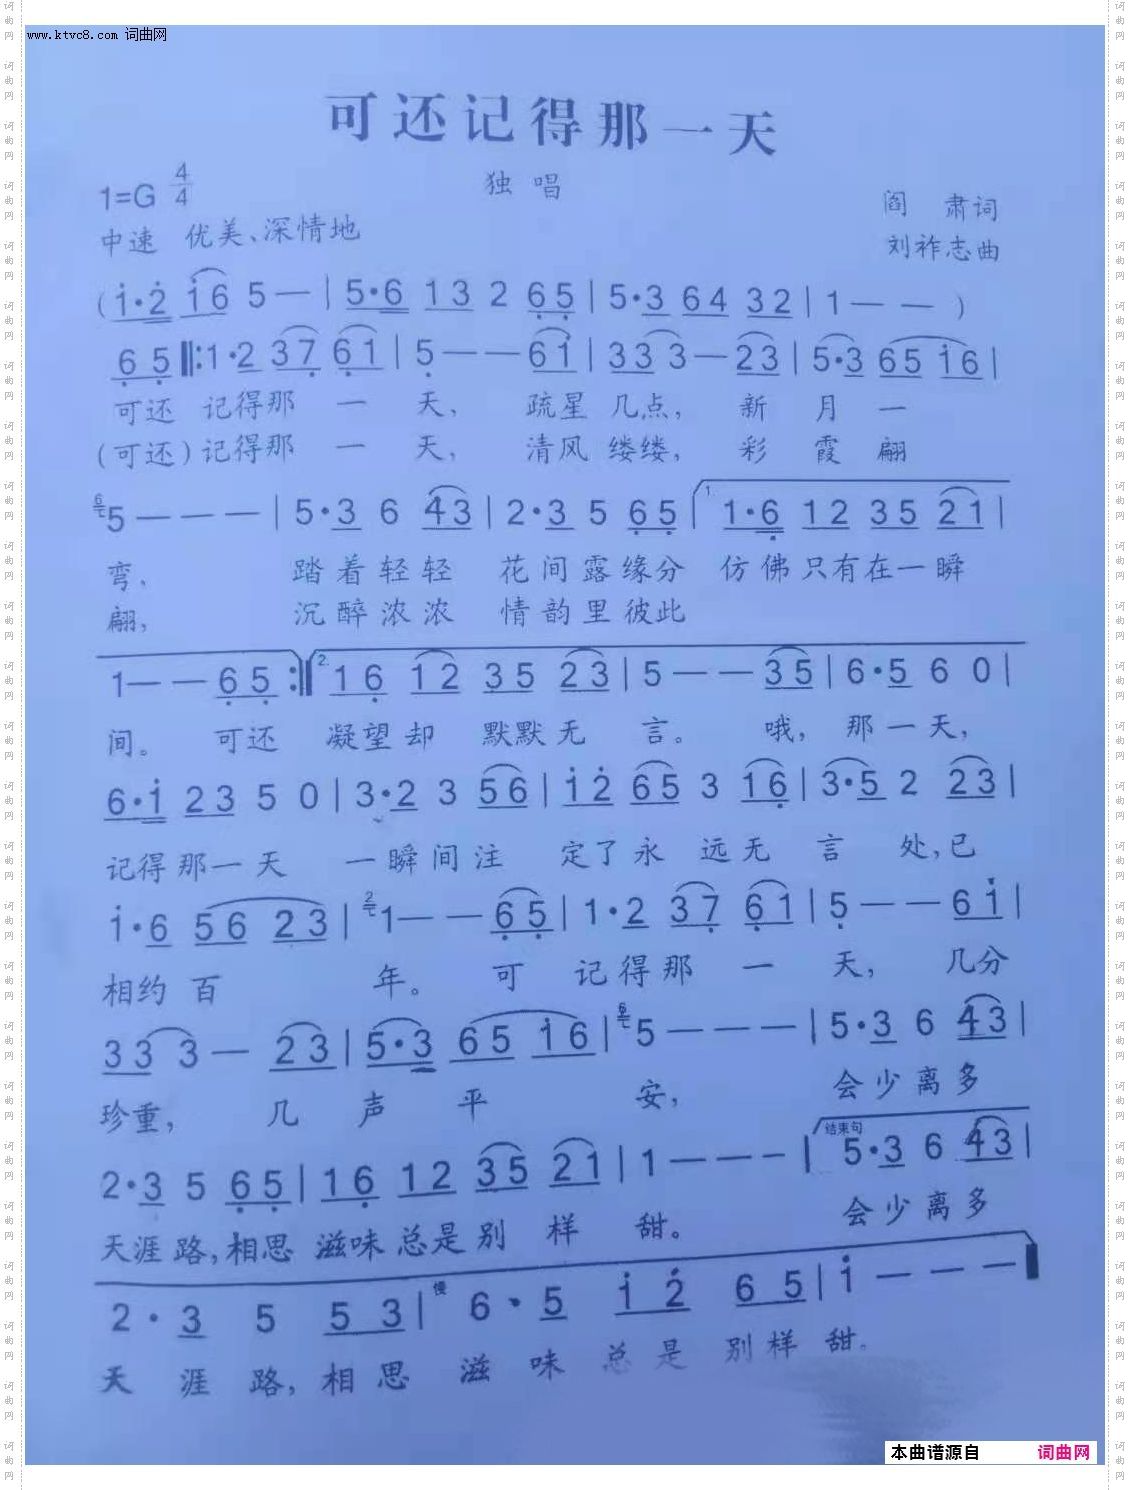 www.ktvc8.com 词曲网
可还记得那一天
独唱
1=G 4/4
阎 肃词
中速 优美、深情地
刘祚志曲
(i·2̇ i6 5 — | 5·6 13 2 65 | 5·3 64 32 | 1 — — )
65 ‖: 1·2 37 61 | 5 — — 6i | 33 3 — 23 | 5·3 65 i6 |
可还 记得那 一 天, 疏星 几点, 新 月 一
(可还) 记得那 一 天, 清风 缕缕, 彩 霞 翩
5 — — — | 5·3 6 43 | 2·3 5 65 | 1. 1·6 12 35 21 |
弯、 踏着轻轻 花间露缘分 仿佛只有在一瞬
翩, 沉醉浓浓 情韵里彼此
1 — — 65 :‖ 2. 16 12 35 23 | 5 — — 35 | 6·5 6 0 |
间。 可还 凝望却 默默无 言。 哦, 那一天,
6·i 23 5 0 | 3·2 3 56 | i2̇ 65 3 16 | 3·5 2 23 |
记得那一天 一瞬间注 定了永 远无 言 处,已
i·6 56 23 | 1 — — 65 | 1·2 37 61 | 5 — — 6i |
相约百 年。 可 记得那 一 天, 几分
33 3 — 23 | 5·3 65 i6 | 5 — — — | 5·3 6 43 |
珍重, 几 声 平 安, 会少离多
2·3 5 65 | 16 12 35 21 | 1 — — — | 结束句 5·3 6 43 |
天涯路,相思 滋味总是别 样 甜。 会少离多
2·3 5 53 | 慢 6·5 i2̇ 65 | i — — — ‖
天涯路,相思 滋味 总是 别样甜。
本曲谱源自 词曲网